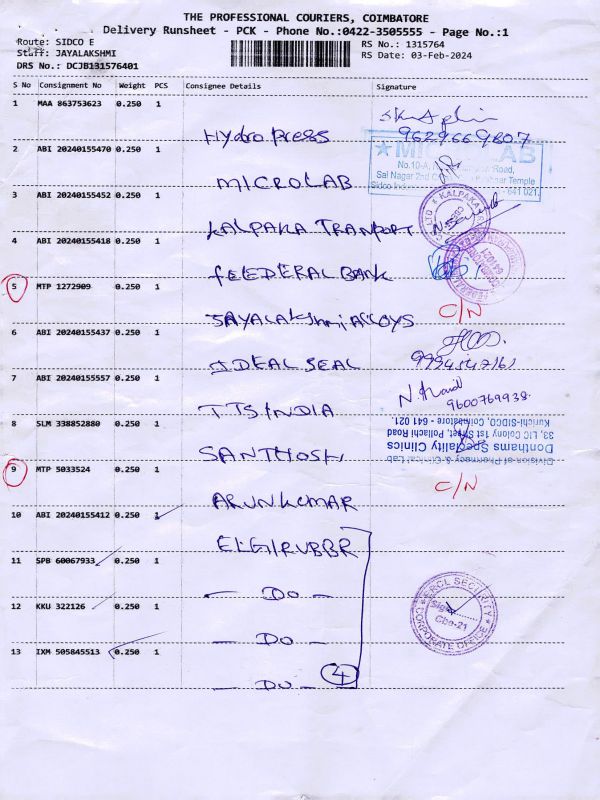 THE PROFESSIONAL COURIERS, COIMBATORE
Delivery Runsheet - PCK - Phone No.:0422-3505555 - Page No.:1
Route: SIDCO E
Staff: JAYALAKSHMI
DRS No.: DCJB131576401
RS No.: 1315764
RS Date: 03-Feb-2024
S No Consignment No Weight PCS Consignee Details Signature
1 MAA 863753623 0.250 1
HYdro PRESS 9629669807
2 ABI 20240155470 0.250 1
MICROLAB
3 ABI 20240155452 0.250 1
KALPAKA TRANPORT
4 ABI 20240155418 0.250 1
fEEDERAL BANK
5 MTP 1272909 0.250 1 C/N
JAYALAkshmi AllOYS
6 ABI 20240155437 0.250 1
IDEAL SEAL 9994547161
7 ABI 20240155557 0.250 1
TTS INDIA 9600769938
8 SLM 338852880 0.250 1
Kurichi-SIDCO, Coimbatore - 641 021.
33, LIC Colony 1st Street, Pollachi Road
Donthams Speciality Clinics
Division of Pharmacy & Clinical Lab
SANTHOSH
9 MTP 5033524 0.250 1 C/N
ARUN KUMAR
10 ABI 20240155412 0.250 1
ELGI RUBBR
11 SPB 60067933 0.250 1
— DO —
12 KKU 322126 0.250 1
— DO —
13 IXM 505845513 0.250 1
— DO —
4
ERCL SECURITY
Sign
Cbe-21
CORPORATE OFFICE